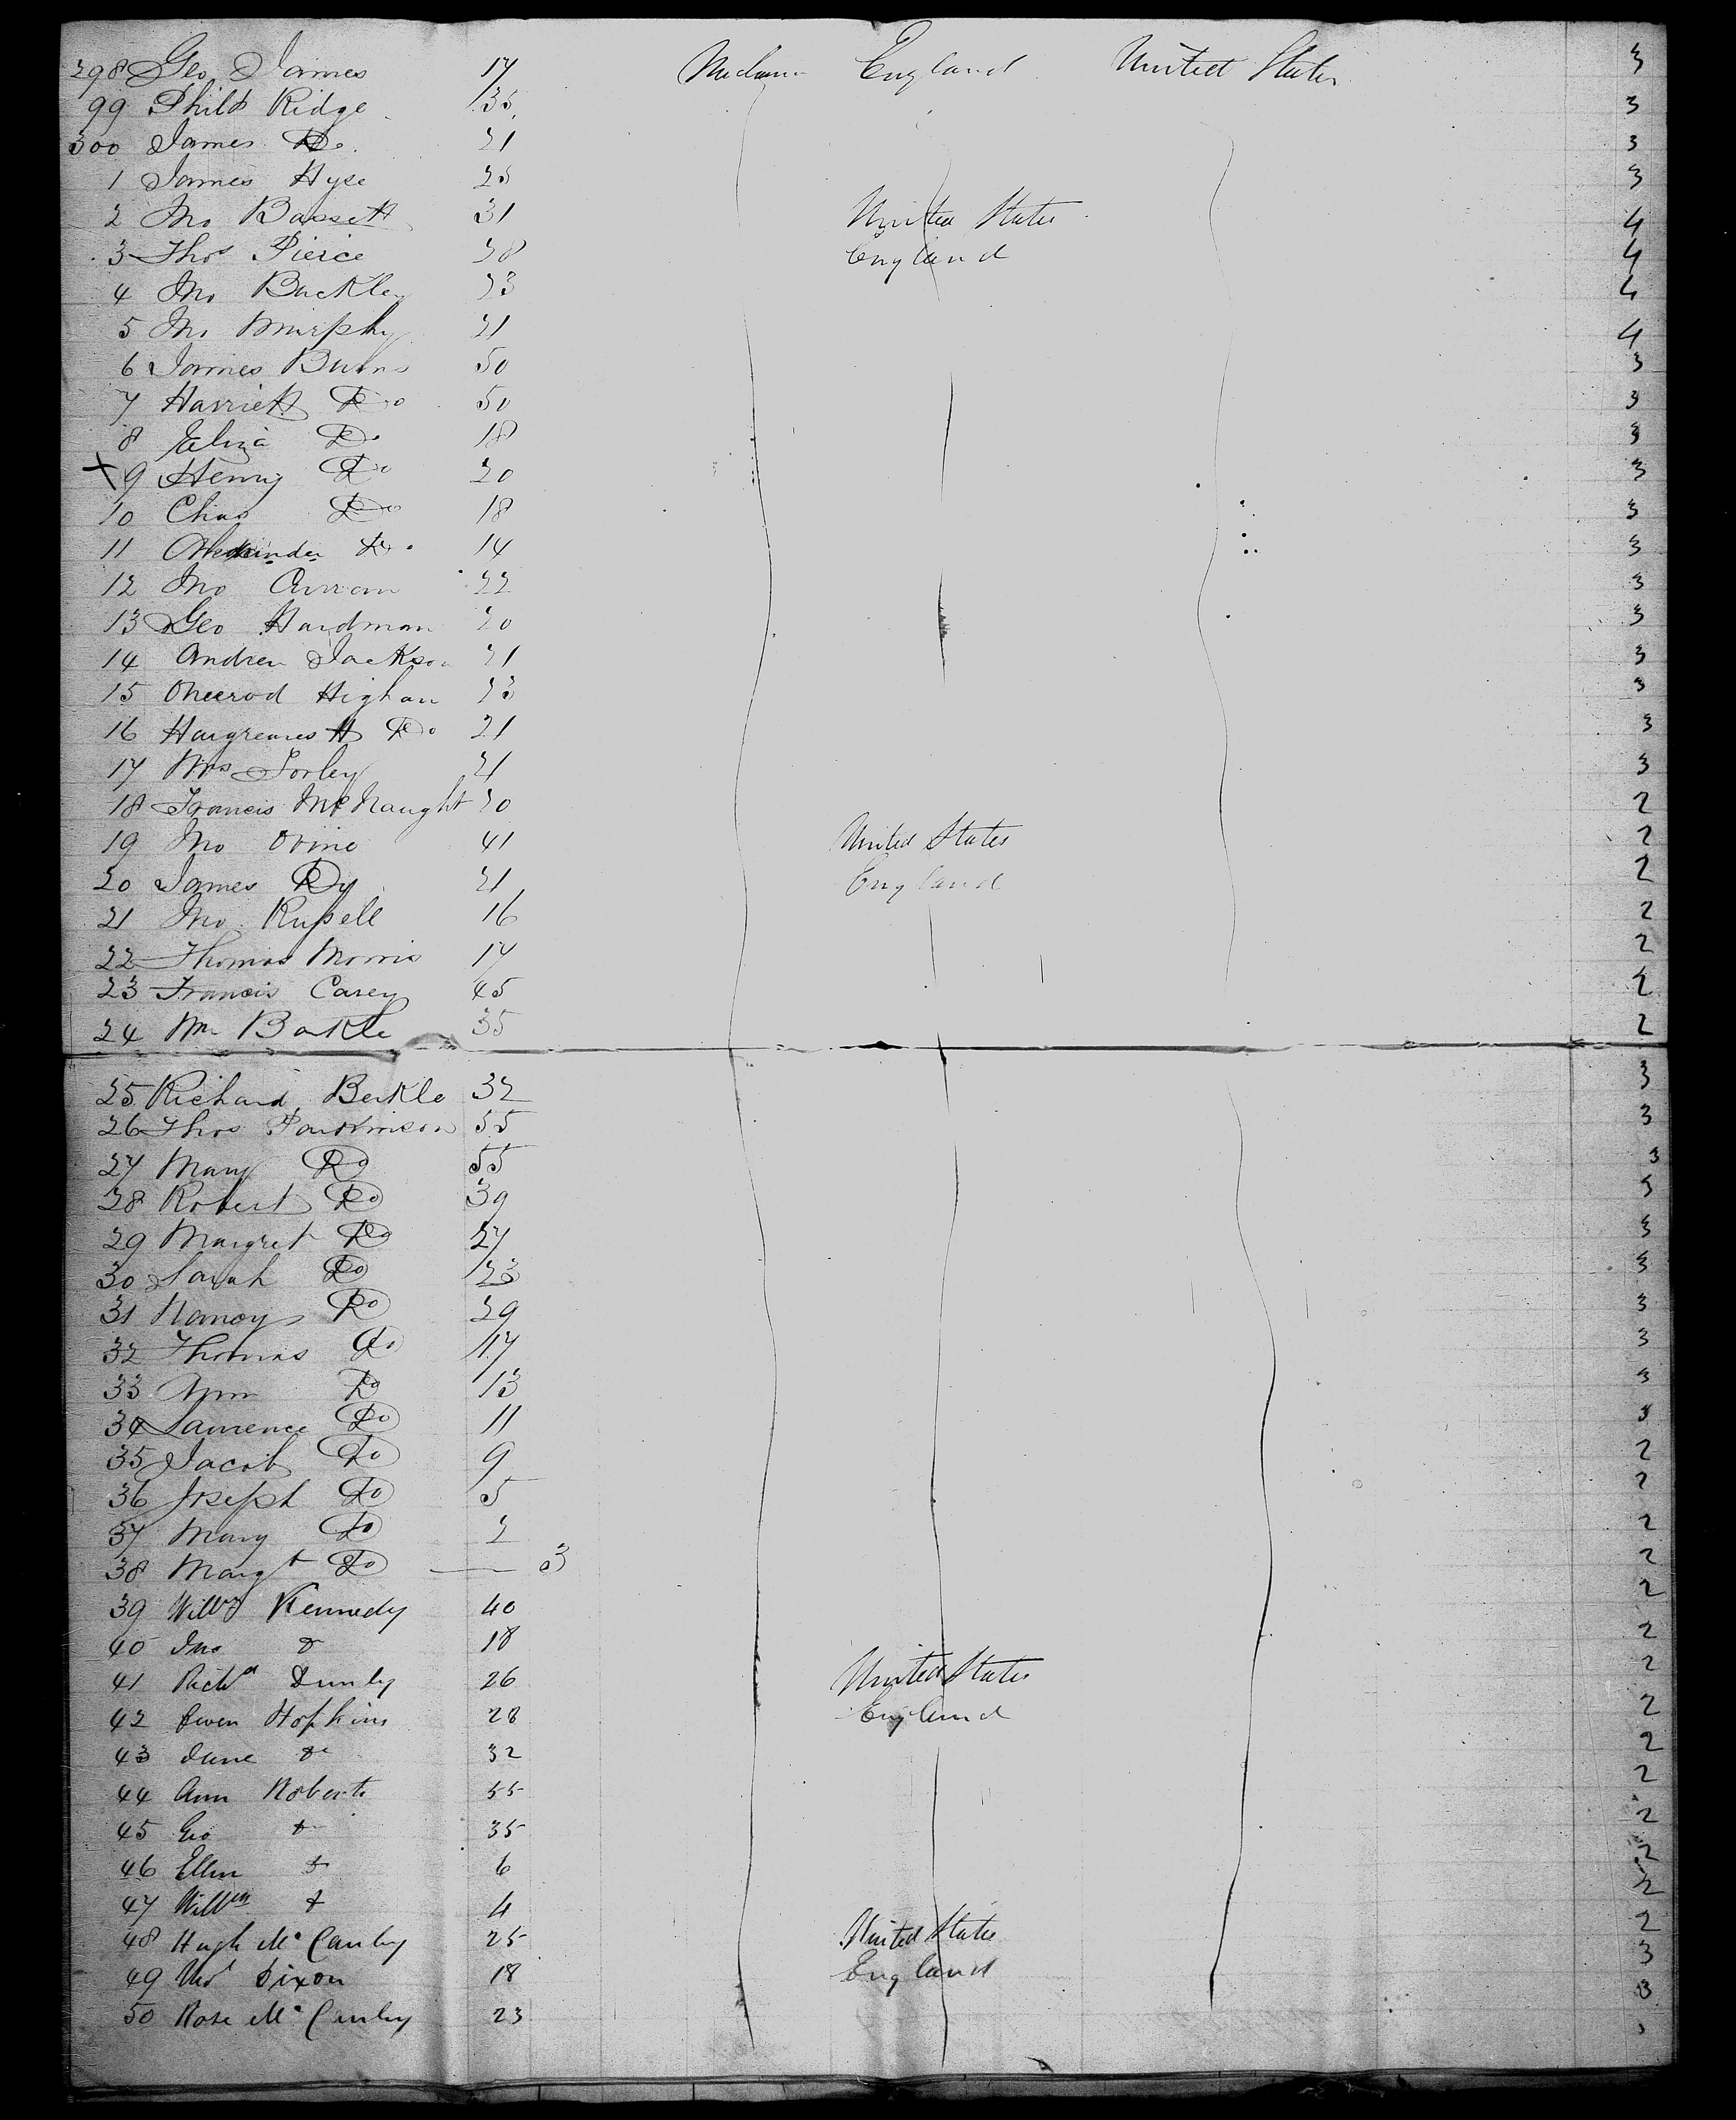 298 Geo James 17 England United States 3
99 Philip Ridge 35 3
300 James Do 21 3
1 James Hyse 25 3
2 Jno Bassett 31 United States 4
3 Thos Pierce 28 England 4
4 Jno Buckley 23 4
5 Jno Murphy 21 4
6 James Burns 50 3
7 Harriett Do 50 3
8 Eliza Do 18 3
x 9 Henry Do 20 3
10 Chas Do 18 3
11 Alexander Do 14 3
12 Jno Curran 22 3
13 Geo Hardman 20 3
14 Andrew Jackson 21 3
15 Higham 23 3
16 Do 21 3
17 Sorley 21 3
18 Francis McNaught 20 2
19 Jno 41 United States 2
20 James 21 England 2
21 Jno Russell 16 2
22 Thomas Morris 17 2
23 Francis Carey 45 2
24 Wm Barkle 35 2
25 Richard Berkle 32 3
26 Thos Parkinson 55 3
27 Mary Do 55 3
28 Robert Do 39 3
29 Margret Do 27 3
30 Sarah Do 23 3
31 Nancy Do 29 3
32 Thomas Do 17 3
33 Ann Do 13 3
34 Lawrence Do 11 3
35 Jacob Do 9 2
36 Joseph Do 5 2
37 Mary Do 2 2
38 Margt Do — 3 2
39 Willm Kennedy 40 2
40 Jno Do 18 2
41 Richd 26 United States 2
42 Owen Hopkins 28 England 2
43 Jane Do 32 2
44 Ann Roberts 55 2
45 Geo Do 35 2
46 Ellen Do 6 2
47 Willm Do 4 2
48 Hugh McCauley 25 United States 2
49 Dixon 18 England 3
50 Rose McCauley 23